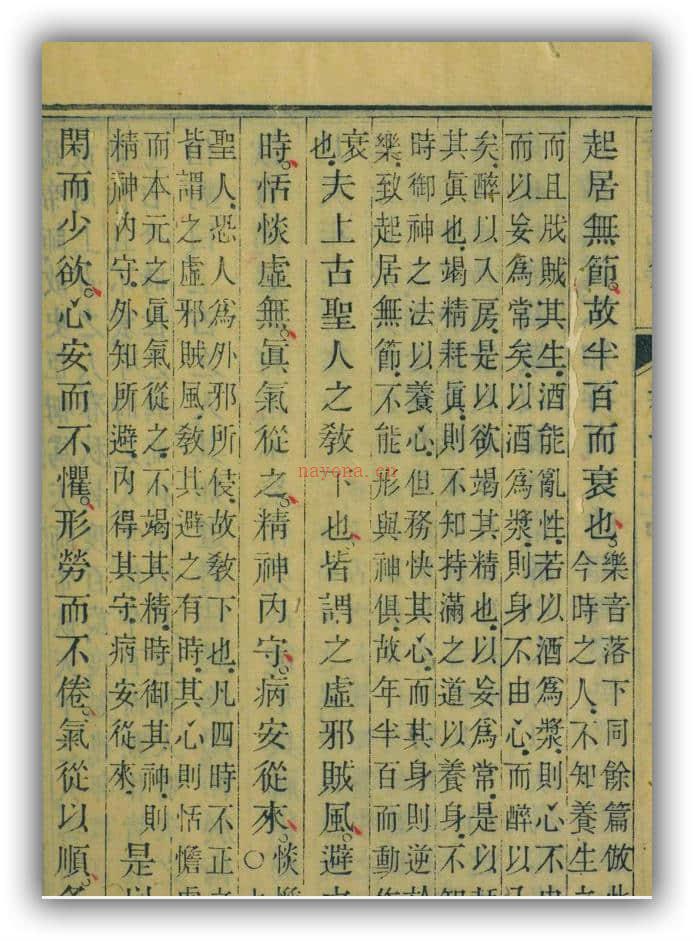 起居無節故半百而衰也樂音落下同餘篇倣此
今時之人不知養生之
而且戕賊其生酒能亂性若以酒爲漿則心不由
而以妄爲常矣以酒爲漿則身不由心而醉以入
矣醉以入房是以欲竭其精也以妄爲常是以耗
其眞也竭精耗眞則不知持滿之道以養身不知
時御神之法以養心但務快其心而其身則逆於
樂致起居無節不能形與神俱故年半百而動作
衰也夫上古聖人之教下也皆謂之虛邪賊風避之
時恬惔虛無眞氣從之精神內守病安從來○惔
聖人恐人爲外邪所侵故教下也凡四時不正之
皆謂之虛邪賊風教其避之有時其心則恬憺虛
而本元之眞氣從之不竭其精時御其神則
精神內守外知所避內得其守病安從來
是以
閑而少欲心安而不懼形勞而不倦氣從以順各
nayona.cn